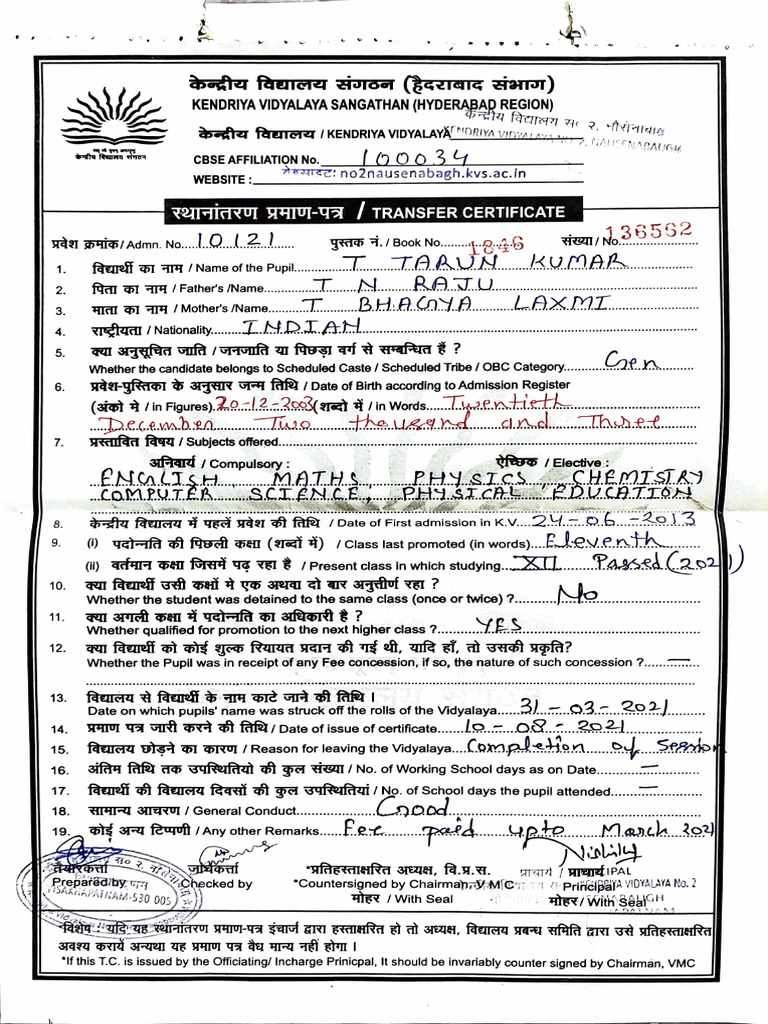 केन्द्रीय विद्यालय संगठन (हैदराबाद संभाग)
KENDRIYA VIDYALAYA SANGATHAN (HYDERABAD REGION)
केन्द्रीय विद्यालय स० २. नौसेनाबाग
केन्द्रीय विद्यालय / KENDRIYA VIDYALAYA KENDRIYA VIDYALAYA NO 2, NAUSENABAUGH
केन्द्रीय विद्यालय संगठन
CBSE AFFILIATION No. 100034
WEBSITE : वेबसाइट: no2nausenabagh.kvs.ac.in
स्थानांतरण प्रमाण-पत्र / TRANSFER CERTIFICATE
प्रवेश क्रमांक / Admn. No. 10121 पुस्तक नं. / Book No. 1846 संख्या / No. 136562
1. विद्यार्थी का नाम / Name of the Pupil T TARUN KUMAR
2. पिता का नाम / Father's /Name T N RAJU
3. माता का नाम / Mother's /Name T BHAGYA LAXMI
4. राष्ट्रीयता / Nationality INDIAN
5. क्या अनुसूचित जाति / जनजाति या पिछड़ा वर्ग से सम्बन्धित हैं ?
Whether the candidate belongs to Scheduled Caste / Scheduled Tribe / OBC Category Gen
6. प्रवेश-पुस्तिका के अनुसार जन्म तिथि / Date of Birth according to Admission Register
(अंको मे / in Figures) 20-12-2003 (शब्दो में / in Words Twentieth
December Two thousand and Three
7. प्रस्तावित विषय / Subjects offered
अनिवार्य / Compulsory : ऐच्छिक / Elective :
ENGLISH, MATHS, PHYSICS, CHEMISTRY
COMPUTER SCIENCE, PHYSICAL EDUCATION
8. केन्द्रीय विद्यालय में पहलें प्रवेश की तिथि / Date of First admission in K.V. 24-06-2013
9. (i) पदोन्नति की पिछली कक्षा (शब्दों में) / Class last promoted (in words) Eleventh
(ii) वर्तमान कक्षा जिसमें पढ़ रहा है / Present class in which studying XII Passed (2021)
10. क्या विद्यार्थी उसी कक्षों मे एक अथवा दो बार अनुत्तीर्ण रहा ?
Whether the student was detained to the same class (once or twice) ? No
11. क्या अगली कक्षा में पदोन्नति का अधिकारी है ?
Whether qualified for promotion to the next higher class ? YES
12. क्या विद्यार्थी को कोई शुल्क रियायत प्रदान की गई थी, यादि हाँ, तो उसकी प्रकृति?
Whether the Pupil was in receipt of any Fee concession, if so, the nature of such concession ? —
13. विद्यालय से विद्यार्थी के नाम काटे जाने की तिथि ।
Date on which pupils' name was struck off the rolls of the Vidyalaya 31-03-2021
14. प्रमाण पत्र जारी करने की तिथि / Date of issue of certificate 10-08-2021
15. विद्यालय छोड़ने का कारण / Reason for leaving the Vidyalaya Completion of Session
16. अंतिम तिथि तक उपस्थितियो की कुल संख्या / No. of Working School days as on Date —
17. विद्यार्थी की विद्यालय दिवसों की कुल उपस्थितियां / No. of School days the pupil attended —
18. सामान्य आचरण / General Conduct Good
19. कोई अन्य टिप्पणी / Any other Remarks Fee paid upto March 2021
तैयारकर्त्ता जाँचकर्त्ता *प्रतिहस्ताक्षरित अध्यक्ष, वि.प्र.स. प्राचार्य / प्राचार्य
Prepared by Checked by *Countersigned by Chairman, V M C Principal KENDRIYA VIDYALAYA No. 2
मोहर / With Seal मोहर/ With Seal
VISAKHAPATNAM-530 005
*विशेष : यदि यह स्थानांतरण प्रमाण-पत्र इंचार्ज द्वारा हस्ताक्षरित हो तो अध्यक्ष, विद्यालय प्रबन्ध समिति द्वारा उसे प्रतिहस्ताक्षरित
अवश्य करायें अन्यथा यह प्रमाण पत्र वैध मान्य नहीं होगा ।
*If this T.C. is issued by the Officiating/ Incharge Prinicpal, It should be invariably counter signed by Chairman, VMC